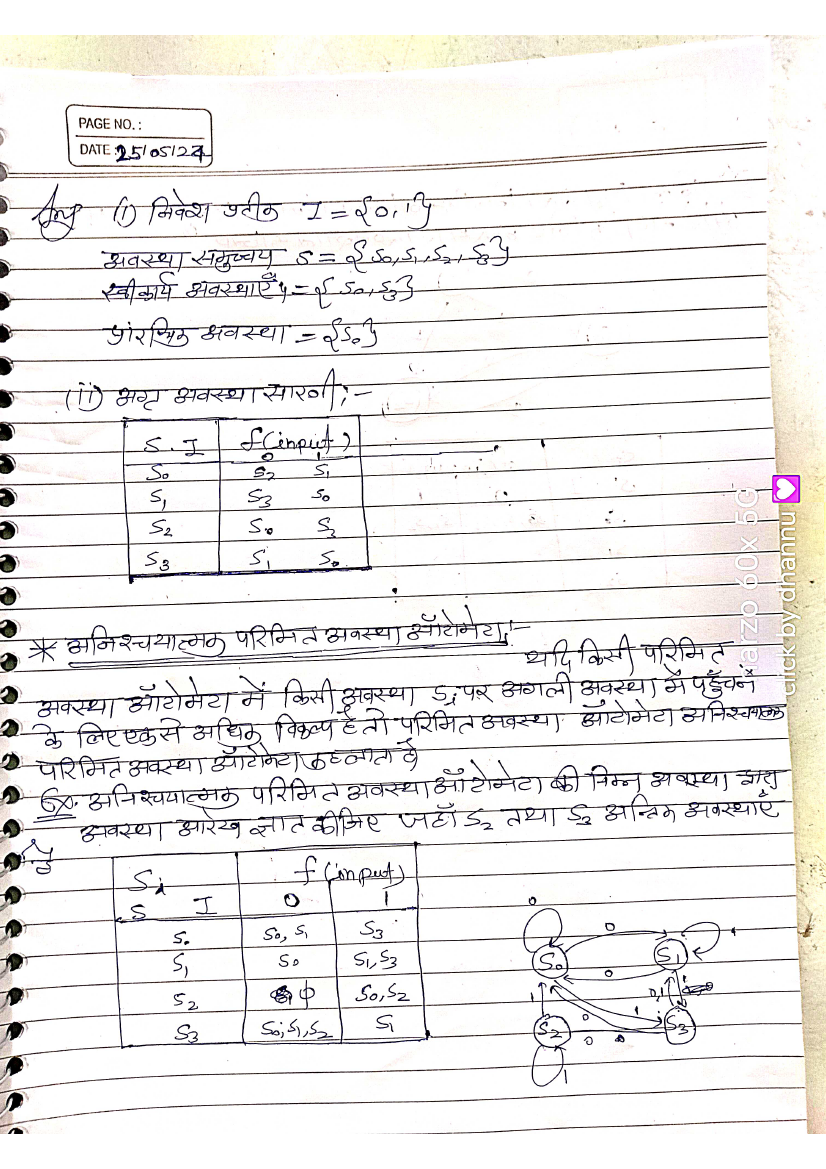 PAGE NO. :
DATE 25/05/24
Ans (i) निवेश प्रतीक I = {0,1}
अवस्था समुच्चय S = {S0, S1, S2, S3}
स्वीकार्य अवस्थाएँ = {S0, S3}
प्रांरभिक अवस्था = {S0}
(ii) अग्र अवस्था सारणी:-
S. I f(input)
0 1
S0 S2 S1
S1 S3 S0
S2 S0 S3
S3 S1 S0
* अनिश्चयात्मक परिमित अवस्था ऑटोमेटा:-
यदि किसी परिमित
अवस्था ऑटोमेटा में किसी अवस्था Si पर अगली अवस्था में पहुँचने
के लिए एक से अधिक विकल्प है तो परिमित अवस्था ऑटोमेटा अनिश्चयात्मक
परिमित अवस्था ऑटोमेटा कहलाता है
Ex. अनिश्चयात्मक परिमित अवस्था ऑटोमेटा की निम्न अवस्था
अवस्था आरेख ज्ञात कीजिए जहाँ S2 तथा S3 अन्तिम अवस्थाएँ
है
Si f(input)
S I 0 1
S0 S0, S1 S3
S1 S0 S1, S3
S2 φ S0, S2
S3 S0, S1, S2 S1
0
0
S0 S1 1
0
1 0,1
S2 0 1 S3
0
1
narzo 60x 5G
click by dhannu